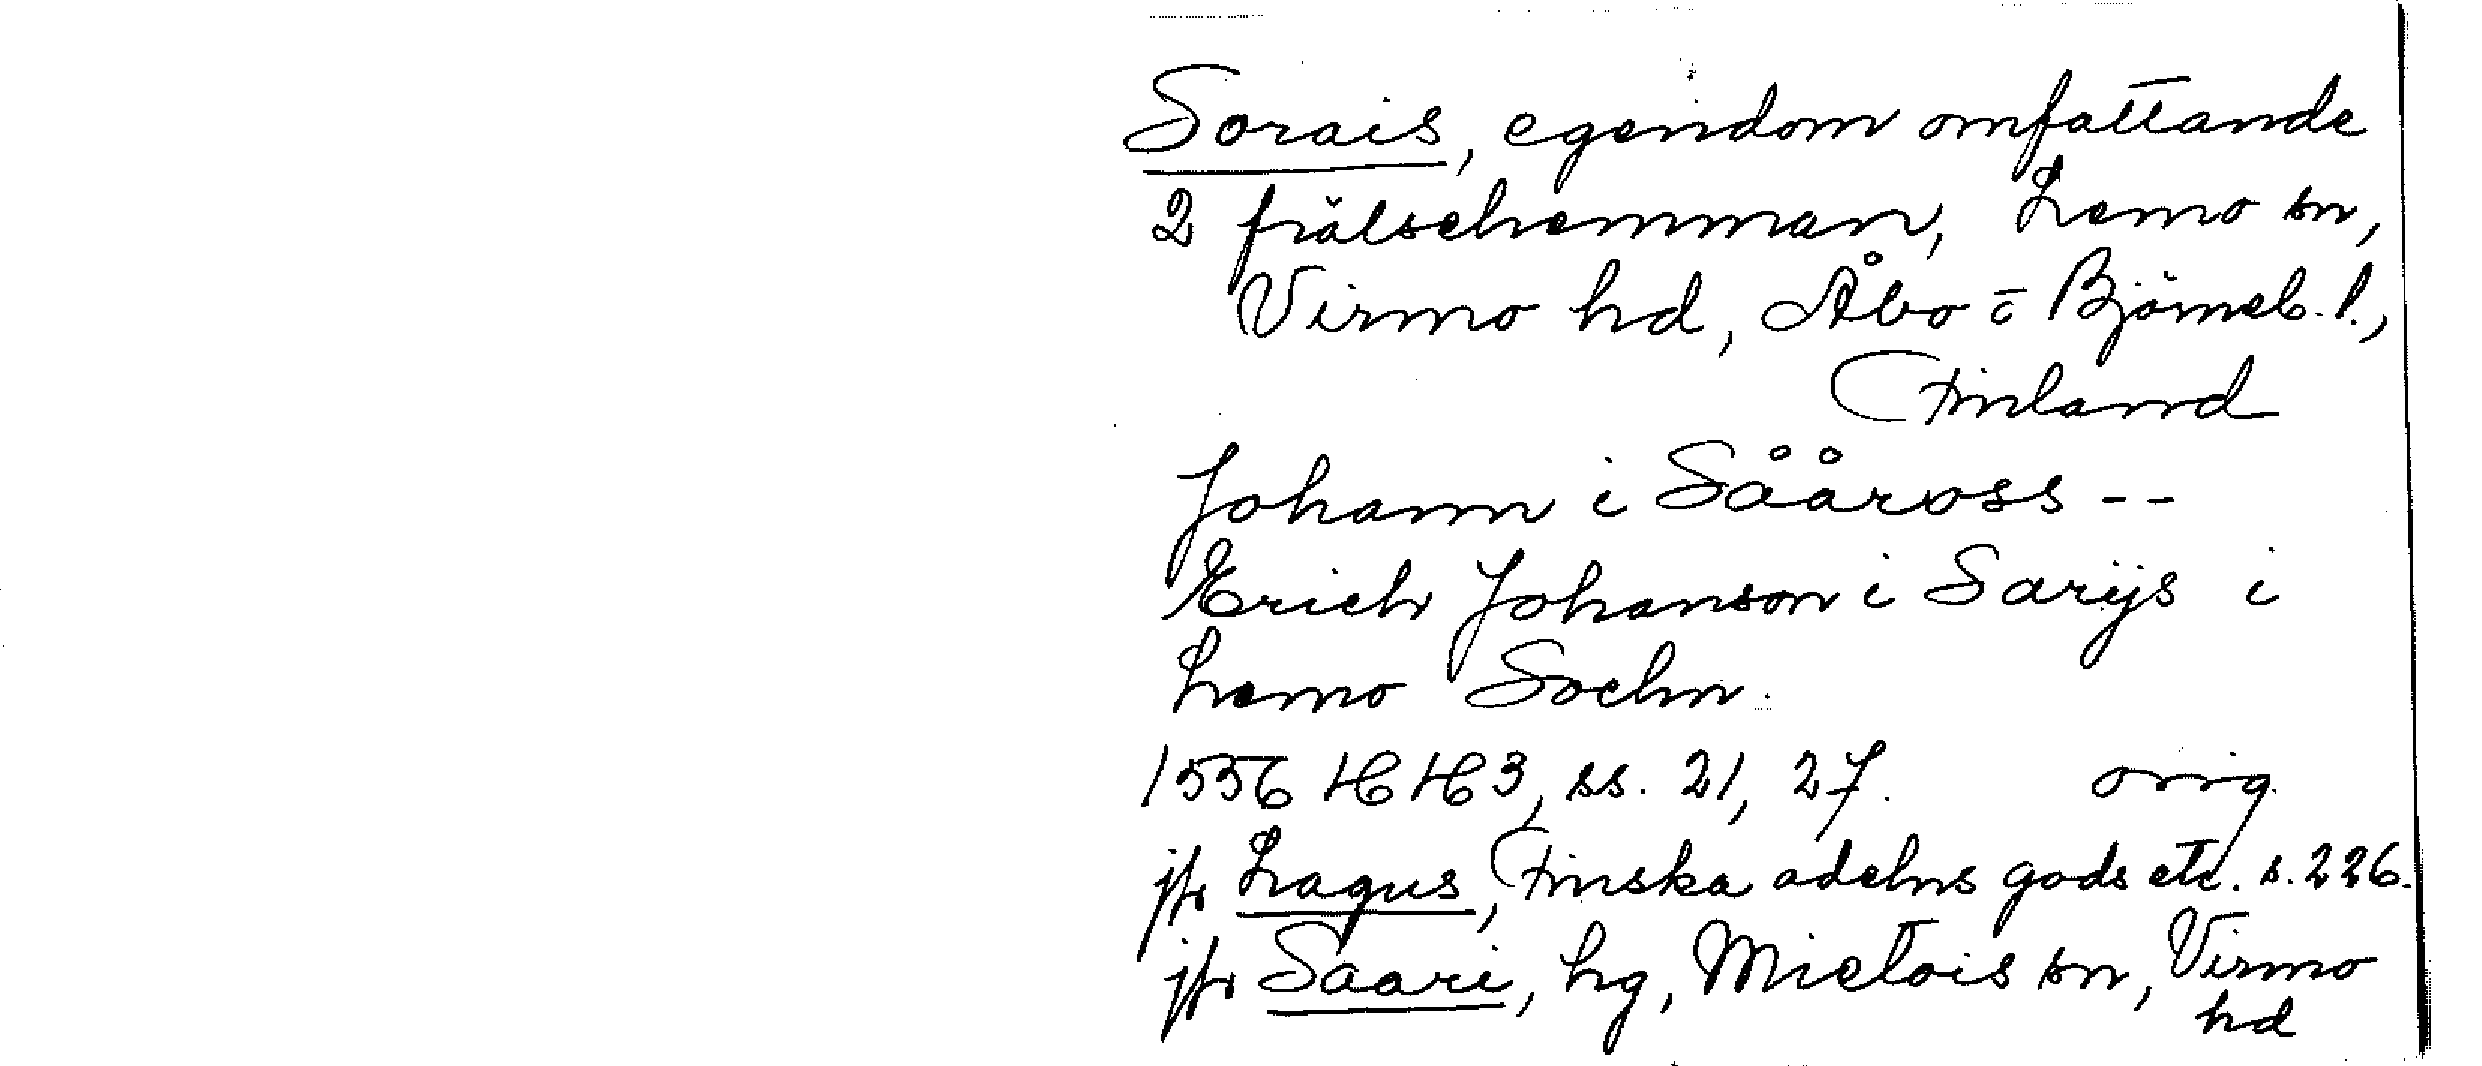 Sorais, egendom omfattande
2 frälsehemman, Lemo sn,
Virmo hd, Åbo o Björneb. l.,
Finland
Johann i Sååross --
Erich Johanson i Sarijs i
Lemo Sochn.
1556 HH3, ss. 21, 27. orig.
jfr Lagus, Finska adelns gods etc. s. 226.
jfr Saari, hg, Mietois sn, Virmo
hd